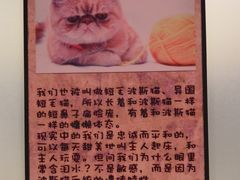 我们也被叫做短毛波斯猫、异国
短毛猫，所以长着和波斯猫一样
的短鼻子扁脸庞，有着和波斯猫一
样的慵懒体态。
现实中的我们是忠诚而平和的，
可以每天甜美地叫主人起床，和
主人玩耍。但问我们为什么眼里
零含泪水？不是敏感，而是因为